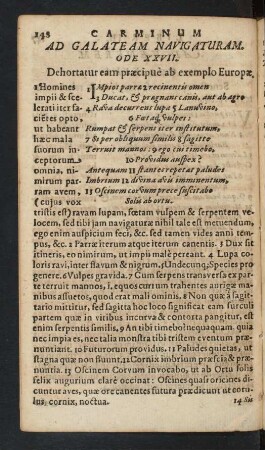 148 CARMINUM
AD GALATEAM NAVIGATURAM.
ODE XXVII.
Dehortatur eam præcipuè ab exemplo Europæ.
1 Homines
impii & sce
lerati iter fa
ciétes opto,
ut habeant
hæc mala
suorum in
ceptorum
omnia, ni
mirum par
ram avem,
(cujus vox
1 IMpios parræ 2 recinentis omen
3 Ducat, & prægnans canis, aut ab agro
4 Rava decurrens lupa 5 Lanuvino,
6 Fœtaq; vulpes:
Rumpat & serpens iter institutum,
Si per obliquum similis 8 sagittæ
Terruit mannos: 9 ego cui timebo,
10 Providus auspex?
Antequam 11 stantes repetat paludes
Imbrium 12 divina avis imminentum,
13 Oscinem corvum prece suscitabo
Solis ab ortu.
tristis est) ravam lupam, fœtam vulpem & serpentem ve
locem, sed tibi jam navigaturæ nihil tale est metuendum,
ego enim auspicium feci, &c. sed tamen vides anni tem-
pus, &c. 2 Patriæ iterum atque iterum canentis. 3 Dux sit
itineris, eo nimirum, ut impii malè pereant. 4 Lupa co
loris ravi, inter flavum & nigrum, 5 Undecunq; Species pro
genere. 6 Vulpes gravida. 7 Cum serpens transversa ex par
te terruit mannos, i, equos currum trahentes aurigæ ma-
nibus assuetos, quod erat mali ominis. 8 Non quæ à sagit-
tario mittitur, sed sagitta hoc loco significat eam surculi
partem quæ in viribus incurva & contorta pangitur, est
enim serpentis similis. 9 An tibi timebo? nequaquam. quia
nec impia es, nec talia monstra tibi tristem eventum præ-
nuntiant. 10 Futurorum providus. 11 Paludes quietas, ut
stagna quæ nõ fluunt, 12 Cornix imbrium præscia & præ-
nuntia. 13 Oscinem Corvum invocabo, ut ab Ortu solis
felix augurium clarè occinat: Oscines quasi oricines di
cuntur aves, quæ ore canentes futura prædicunt ut cor
tus, cornix, noctua.
14 Sis